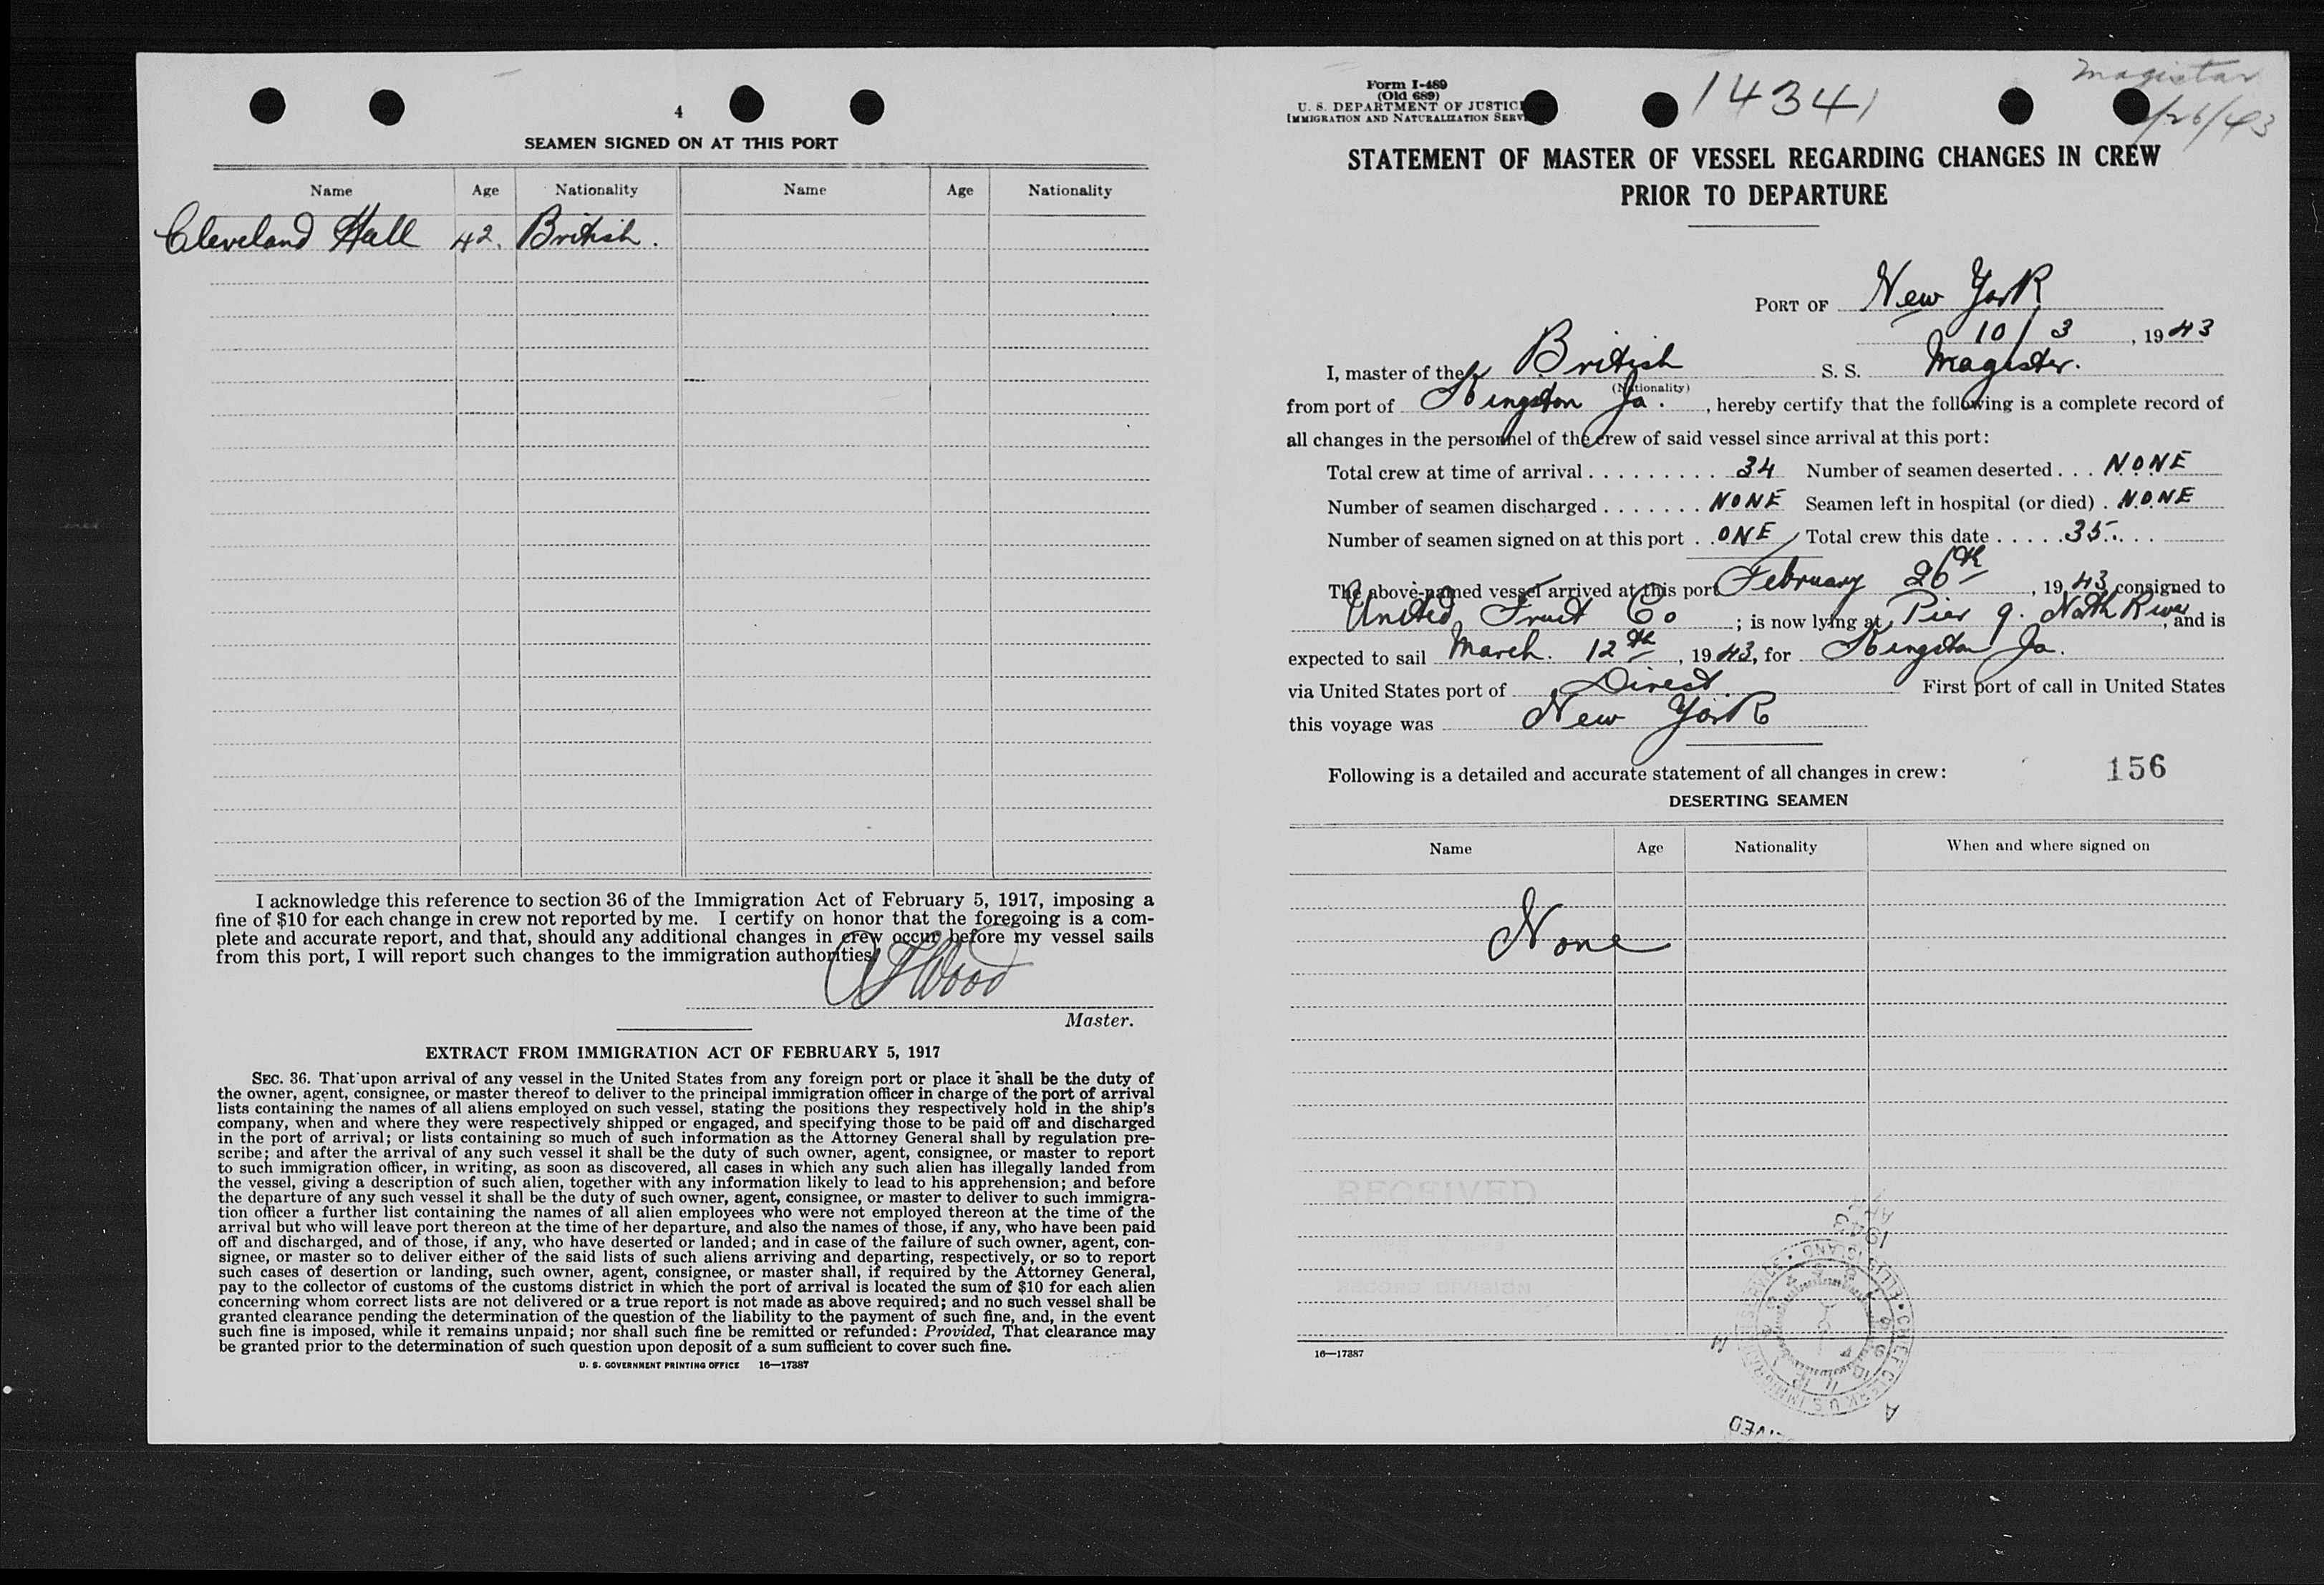 4
SEAMEN SIGNED ON AT THIS PORT
Name Age Nationality Name Age Nationality
Cleveland Hall 42. British.
I acknowledge this reference to section 36 of the Immigration Act of February 5, 1917, imposing a
fine of $10 for each change in crew not reported by me. I certify on honor that the foregoing is a com-
plete and accurate report, and that, should any additional changes in crew occur before my vessel sails
from this port, I will report such changes to the immigration authorities.
Wood
Master.
EXTRACT FROM IMMIGRATION ACT OF FEBRUARY 5, 1917
SEC. 36. That upon arrival of any vessel in the United States from any foreign port or place it shall be the duty of
the owner, agent, consignee, or master thereof to deliver to the principal immigration officer in charge of the port of arrival
lists containing the names of all aliens employed on such vessel, stating the positions they respectively hold in the ship's
company, when and where they were respectively shipped or engaged, and specifying those to be paid off and discharged
in the port of arrival; or lists containing so much of such information as the Attorney General shall by regulation pre-
scribe; and after the arrival of any such vessel it shall be the duty of such owner, agent, consignee, or master to report
to such immigration officer, in writing, as soon as discovered, all cases in which any such alien has illegally landed from
the vessel, giving a description of such alien, together with any information likely to lead to his apprehension; and before
the departure of any such vessel it shall be the duty of such owner, agent, consignee, or master to deliver to such immigra-
tion officer a further list containing the names of all alien employees who were not employed thereon at the time of the
arrival but who will leave port thereon at the time of her departure, and also the names of those, if any, who have been paid
off and discharged, and of those, if any, who have deserted or landed; and in case of the failure of such owner, agent, con-
signee, or master so to deliver either of the said lists of such aliens arriving and departing, respectively, or so to report
such cases of desertion or landing, such owner, agent, consignee, or master shall, if required by the Attorney General,
pay to the collector of customs of the customs district in which the port of arrival is located the sum of $10 for each alien
concerning whom correct lists are not delivered or a true report is not made as above required; and no such vessel shall be
granted clearance pending the determination of the question of the liability to the payment of such fine, and, in the event
such fine is imposed, while it remains unpaid; nor shall such fine be remitted or refunded: Provided, That clearance may
be granted prior to the determination of such question upon deposit of a sum sufficient to cover such fine.
U. S. GOVERNMENT PRINTING OFFICE 16—17387
Form I-489
(Old 689)
U. S. DEPARTMENT OF JUSTIC
IMMIGRATION AND NATURALIZATION SERV
14341
Magistar
/26/43
STATEMENT OF MASTER OF VESSEL REGARDING CHANGES IN CREW
PRIOR TO DEPARTURE
PORT OF New York
10/3, 1943
I, master of the British S. S. Magister.
(Nationality)
from port of Kingston Ja., hereby certify that the following is a complete record of
all changes in the personnel of the crew of said vessel since arrival at this port:
Total crew at time of arrival . . . . . . . . . . 34 Number of seamen deserted . . . NONE
Number of seamen discharged . . . . . . . NONE Seamen left in hospital (or died) . NONE
Number of seamen signed on at this port . . ONE Total crew this date . . . . . 35 . . .
The above-named vessel arrived at this port February 26th, 1943, consigned to
United Fruit Co; is now lying at Pier 9. North River, and is
expected to sail March. 12th, 1943, for Kingston Ja.
via United States port of Direct. First port of call in United States
this voyage was New York
Following is a detailed and accurate statement of all changes in crew:
156
DESERTING SEAMEN
Name Age Nationality When and where signed on
None
RECEIVED
1943
CHIEF CLERK U S IMMIGRATION SERVICE • ELLIS ISLAND •
16—17387